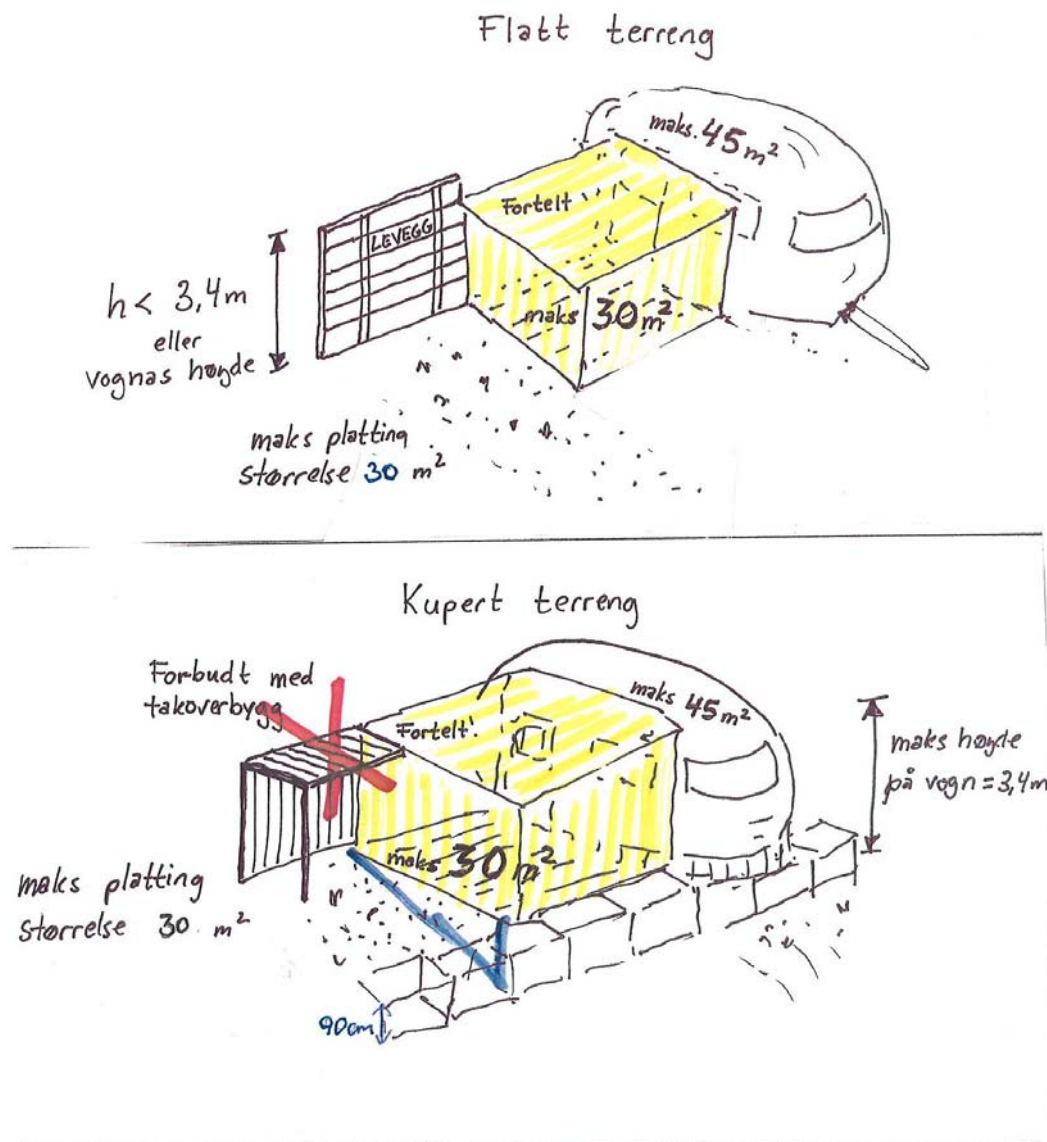 Flatt terreng
maks. 45 m²
Fortelt
LEVEGG
h < 3,4m
eller
vognas høyde
maks 30 m²
maks platting
størrelse 30 m²
Kupert terreng
Forbudt med
takoverbygg
Fortelt
maks 45 m²
maks høyde
på vogn = 3,4m
maks 30 m²
maks platting
størrelse 30 m²
90cm